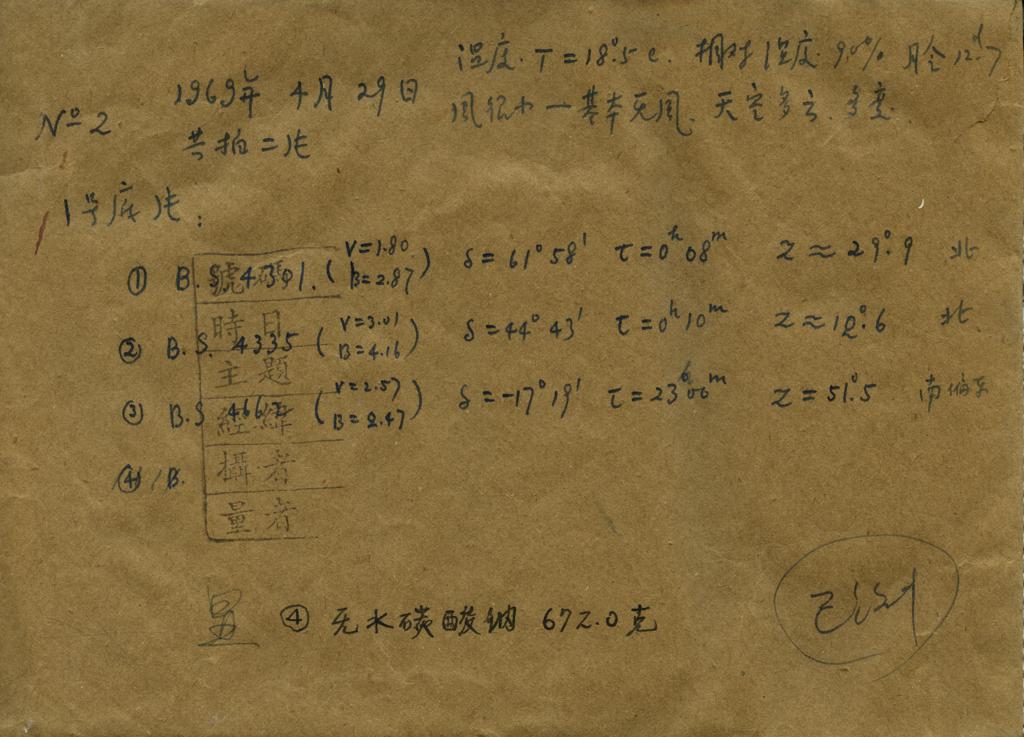 温度. T=18°.5 c. 相对湿度. 90% 月令12.ᵈ7
№ 2. 1969年 4月 29日
风很小—基本无风. 天空多云. 多变.
共拍二片
1号底片:
① B. S. 4301. (V=1.80 B=2.87) δ=61°58′ τ=0ʰ08ᵐ Z≈29°.9 北
② B. S. 4335 (V=3.01 B=4.16) δ=44°43′ τ=0ʰ10ᵐ Z≈12°.6 北
③ B.S. 4662 (V=2.57 B=2.47) δ=-17°19′ τ=23ʰ00ᵐ Z=51°.5 南偏东
④ B.
號碼
時日
主題
經緯
攝者
量者
④ 无水碳酸钠 672.0克
已测